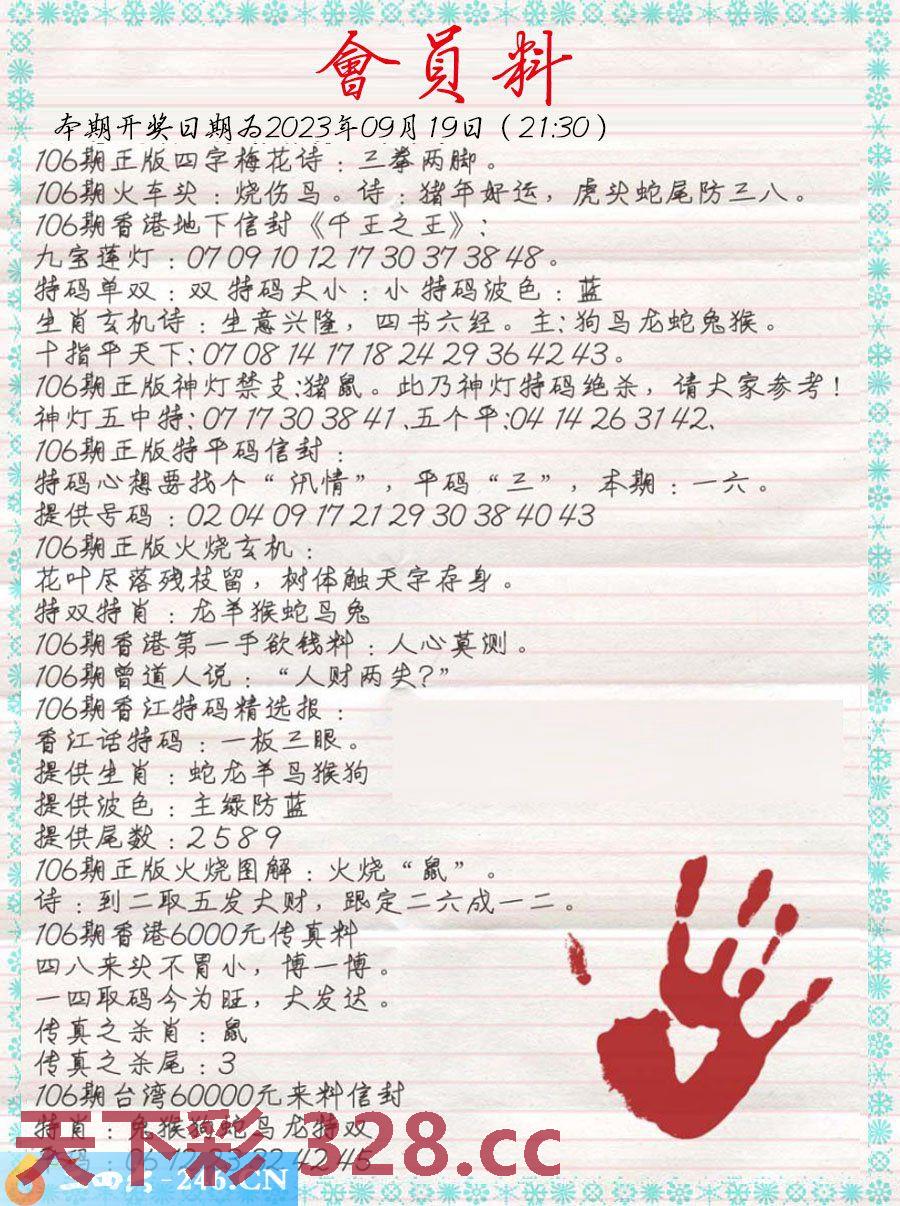 會員料
本期开奖日期为2023年09月19日（21:30）
106期正版四字梅花诗：三拳两脚。
106期火车头：烧伤鸟。诗：猪年好运，虎头蛇尾防三八。
106期香港地下信封《千王之王》：
九宝莲灯：07 09 10 12 17 30 37 38 48。
特码单双：双 特码大小：小 特码波色：蓝
生肖玄机诗：生意兴隆，四书六经。主：狗马龙蛇兔猴。
十指平天下：07 08 14 17 18 24 29 36 42 43。
106期正版神灯禁支：猪鼠。此乃神灯特码绝杀，请大家参考！
神灯五中特：07 17 30 38 41、五个平：04 14 26 31 42、
106期正版特平码信封：
特码心想要找个“汛情”，平码“三”，本期：一六。
提供号码：02 04 09 17 21 29 30 38 40 43
106期正版火烧玄机：
花叶尽落残枝留，树体触天字存身。
特双特肖：龙羊猴蛇马兔
106期香港第一手欲钱料：人心莫测。
106期曾道人说：“人财两失？”
106期香江特码精选报：
香江话特码：一板三眼。
提供生肖：蛇龙羊马猴狗
提供波色：主绿防蓝
提供尾数：2 5 8 9
106期正版火烧图解：火烧“鼠”。
诗：到二取五发大财，跟定二六成一二。
106期香港6000元传真料
四八来头不胃小，博一博。
一四取码今为旺，大发达。
传真之杀肖：鼠
传真之杀尾：3
106期台湾60000元来料信封
特肖：兔猴狗蛇马龙特双
42 45
天下彩 328.cc
-246.CN